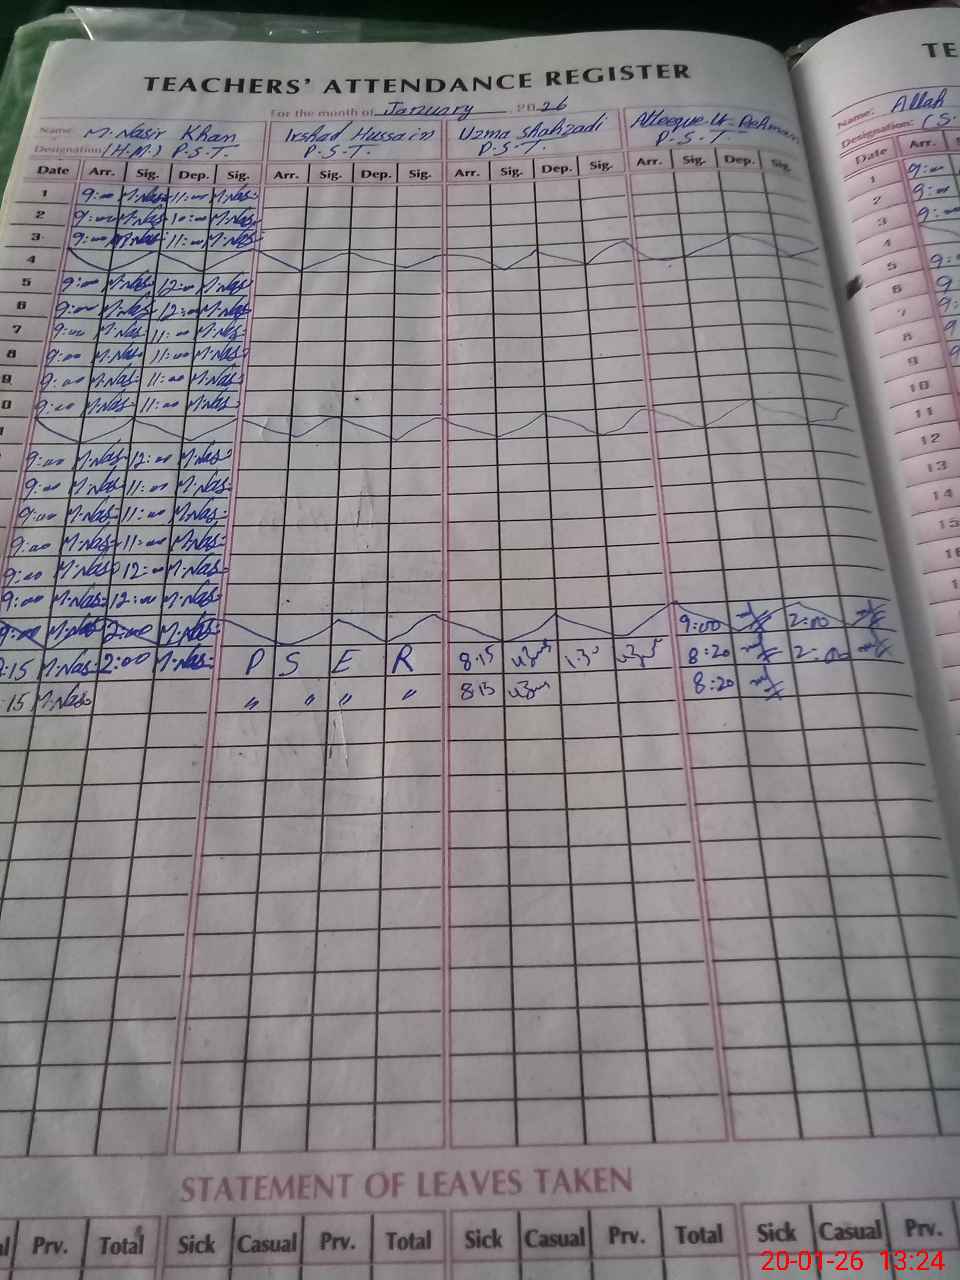 TEACHERS' ATTENDANCE REGISTER
For the month of January 2026
Name M. Nasir Khan Irshad Hussain Uzma Shahzadi
Designation (H.M) P.S.T. P.S.T. P.S.T. P.S.T
Date Arr. Sig. Dep. Sig. Arr. Sig. Dep. Sig. Arr. Sig. Dep. Sig. Arr. Sig. Dep. Sig.
1 9:00 M.Nas 11:00 M.Nas
2 9:00 M.Nas 10:00 M.Nas
3 9:00 M.Nas 11:00 M.Nas
4
5 9:00 M.Nas 12:00 M.Nas
6 9:00 M.Nas 12:00 M.Nas
7 9:00 M.Nas 11:00 M.Nas
8 9:00 M.Nas 11:00 M.Nas
9 9:00 M.Nas 11:00 M.Nas
0 9:00 M.Nas 11:00 M.Nas
9:00 M.Nas 12:00 M.Nas
9:00 M.Nas 11:00 M.Nas
9:00 M.Nas 11:00 M.Nas
9:00 M.Nas 11:00 M.Nas
9:00 M.Nas 12:00 M.Nas
9:00 M.Nas 12:00 M.Nas
9:00 M.Nas 2:00 M.Nas 9:00 2:00
:15 M.Nas 2:00 M.Nas P S E R 8:15 1:30 8:20 2:00
:15 M.Nas " " " " 8:15 8:20
STATEMENT OF LEAVES TAKEN
Prv. Total Sick Casual Prv. Total Sick Casual Prv. Total Sick Casual Prv.
TE
Name: Allah
Designation: (S.
Date Arr.
1 9:00
2 9:00
3 9:00
4
5 9:
6 9
7 9:
8 9
9 9
10
11
12
13
14
15
20-01-26 13:24